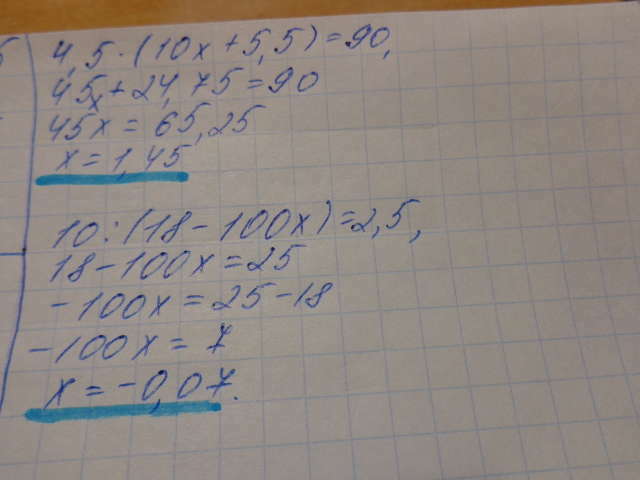 4,5·(10x+5,5)=90,
45x+24,75=90
45x=65,25
x=1,45
10:(18-100x)=2,5,
18-100x=25
-100x=25-18
-100x=7
x=-0,07.